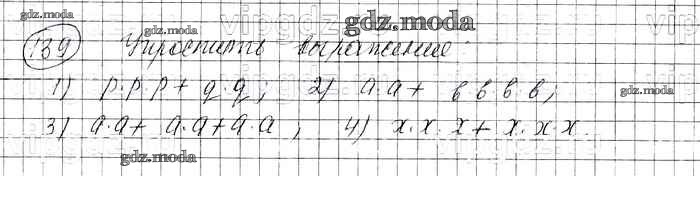 gdz.moda
gdz.moda
gdz.moda
139 Упростить выражение:
1) p·p·p + q·q; 2) a·a + b·b·b·b;
gdz.moda
3) a·a + a·a + a·a; 4) x·x·x + x·x·x.
gdz.moda